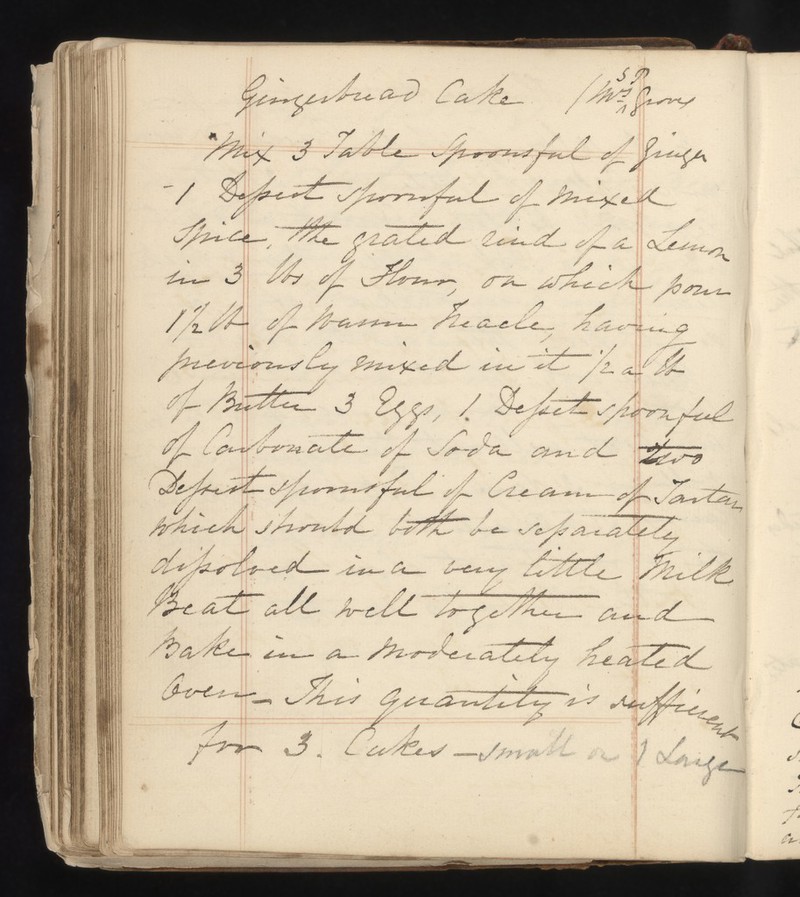 Gingerbread Cake (Mrs Groves
Mix 3 Table Spoonsful of Ginger
- 1 Dessert spoonful of mixed
Spice, the grated rind of a Lemon
in 3 lbs of Flour, on which pour
1 1/2 lb of warm Treacle, having
previously mixed in it 1/2 a lb
of Butter 3 Eggs, 1 Dessert spoonful
of Carbonate of Soda and two
Dessert spoonsful of Cream of Tartar
which should both be separately
dissolved in a very little Milk
Beat all well together and
Bake in a moderately heated
Oven - This quantity is sufficient
for 3. Cakes - small or 1 Large